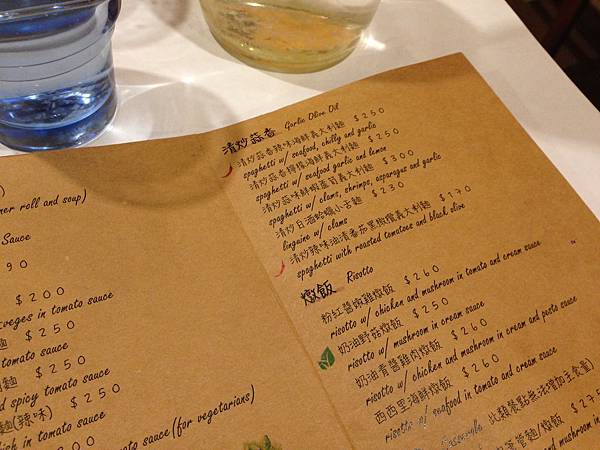 ner roll and soup)
Sauce
90
$200
veges in tomato sauce
麵 $250
tomato sauce
麵 $250
d spicy tomato sauce
麵(辣味) $250
ish in tomato sauce
$200
tomato sauce(for vegetarians)
清炒蒜香 Garlic Olive Oil
清炒蒜香辣味海鮮義大利麵 $250
spaghetti w/ seafood, chilly and garlic
清炒蒜香檸檬海鮮義大利麵 $250
spaghetti w/ seafood garlic and lemon
清炒蒜味鮮蝦蘆筍義大利麵 $300
spaghetti w/ clams, shrimps, asparagus and garlic
清炒白酒蛤蠣小舌麵 $230
linguine w/ clams
清炒辣味油漬番茄黑橄欖義大利麵 $170
spaghetti with roasted tomatoes and black olive
燉飯 Risotto
粉紅醬嫩雞燉飯 $260
risotto w/ chicken and mushroom in tomato and cream sauce
奶油野菇燉飯 $250
risotto w/ mushroom in cream sauce
奶油青醬雞肉燉飯 $260
risotto w/ chicken and mushroom in cream and pesto sauce
西西里海鮮燉飯 $260
risotto w/ seafood in tomato and cream sauce
Casserole 此類餐點無法增加主食量)
筆管麵/燉飯 $275
mushroom in